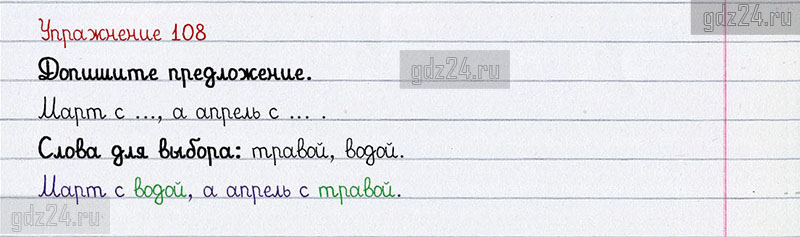 gdz24.ru
Упражнение 108
Допишите предложение.
gdz24.ru
Март с ..., а апрель с ... .
Слова для выбора: травой, водой.
Март с водой, а апрель с травой.
gdz24.ru